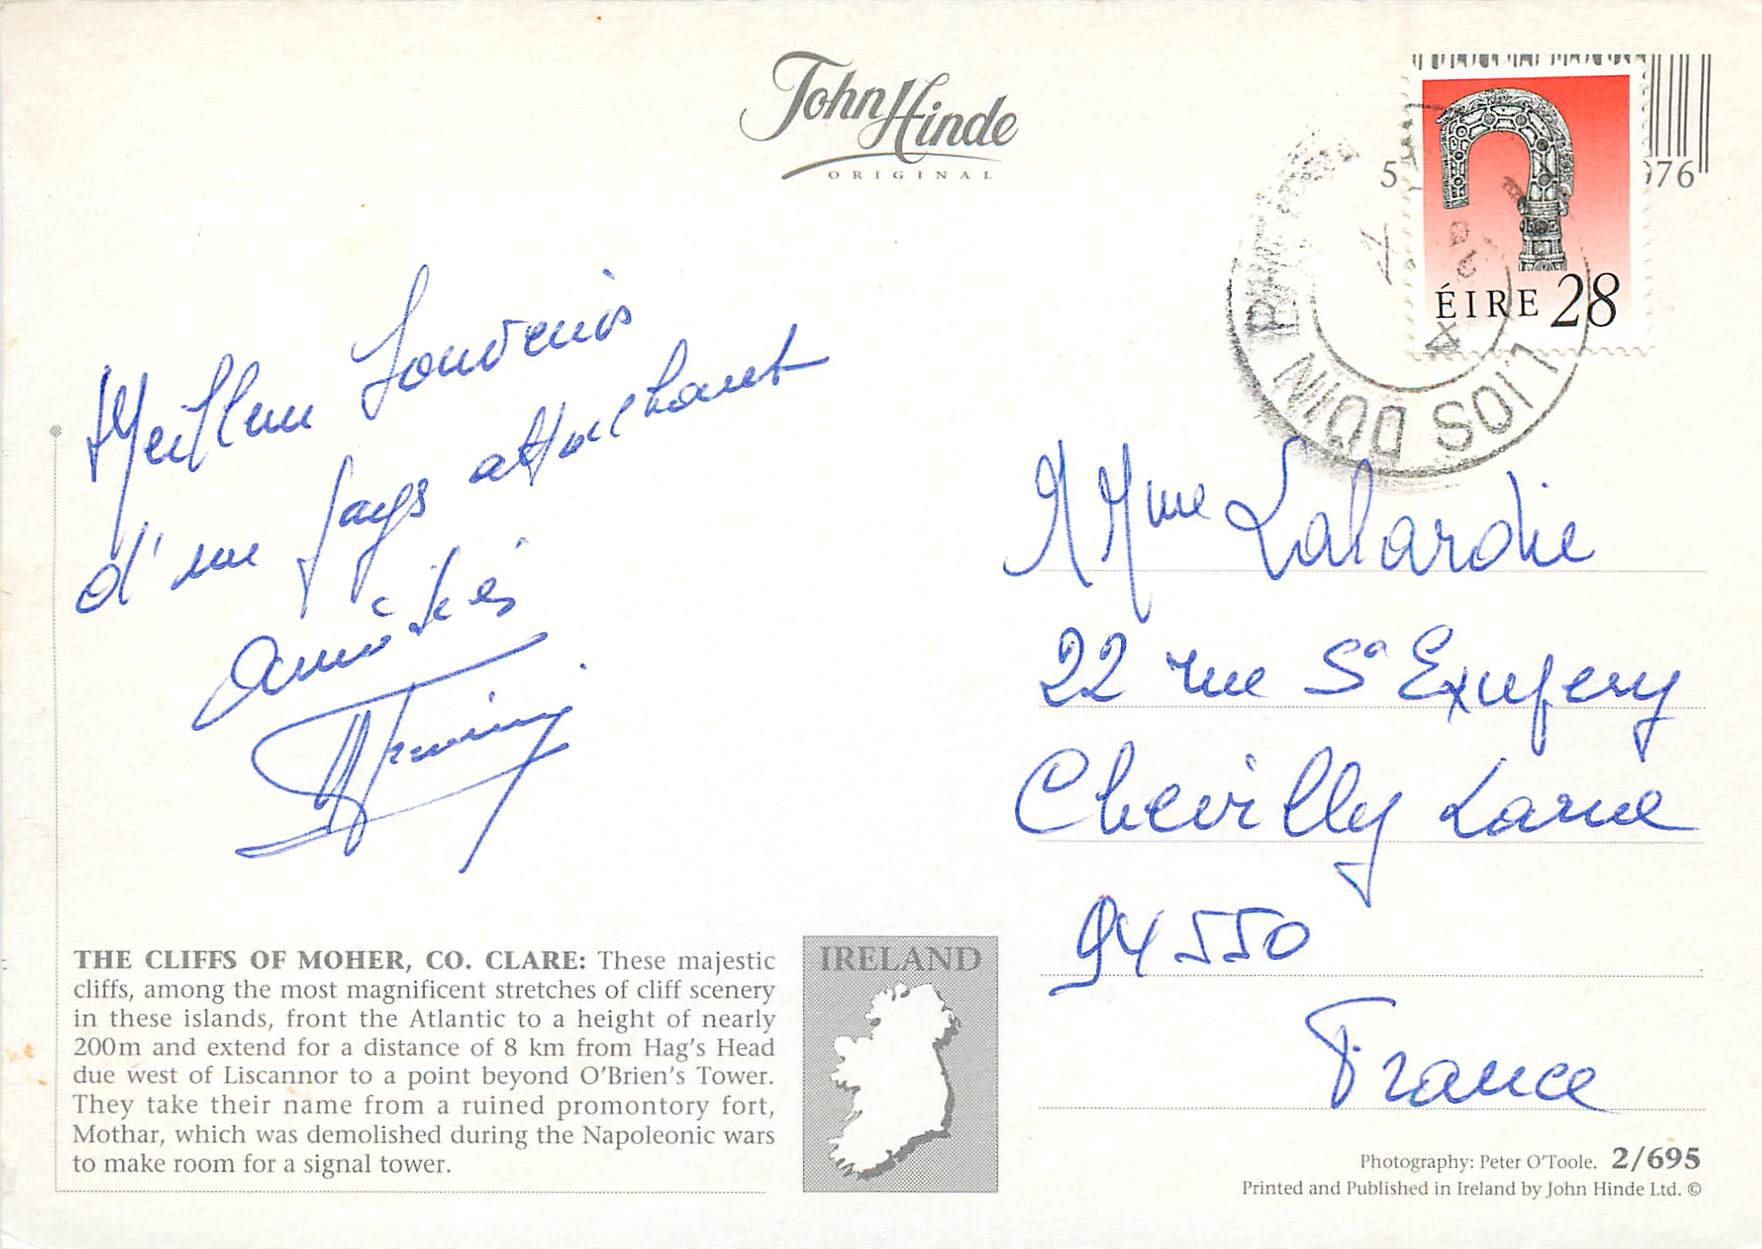 John Hinde
ORIGINAL
5
976
ÉIRE 28
LIOS DÚIN
Meilleur Souvenirs
d'un pays attachant
amitiés
M Mme Lalardie
22 rue St Exupery
Chevilly Larue
94550
France
THE CLIFFS OF MOHER, CO. CLARE: These majestic
cliffs, among the most magnificent stretches of cliff scenery
in these islands, front the Atlantic to a height of nearly
200m and extend for a distance of 8 km from Hag's Head
due west of Liscannor to a point beyond O'Brien's Tower.
They take their name from a ruined promontory fort,
Mothar, which was demolished during the Napoleonic wars
to make room for a signal tower.
IRELAND
Photography: Peter O'Toole. 2/695
Printed and Published in Ireland by John Hinde Ltd. ©